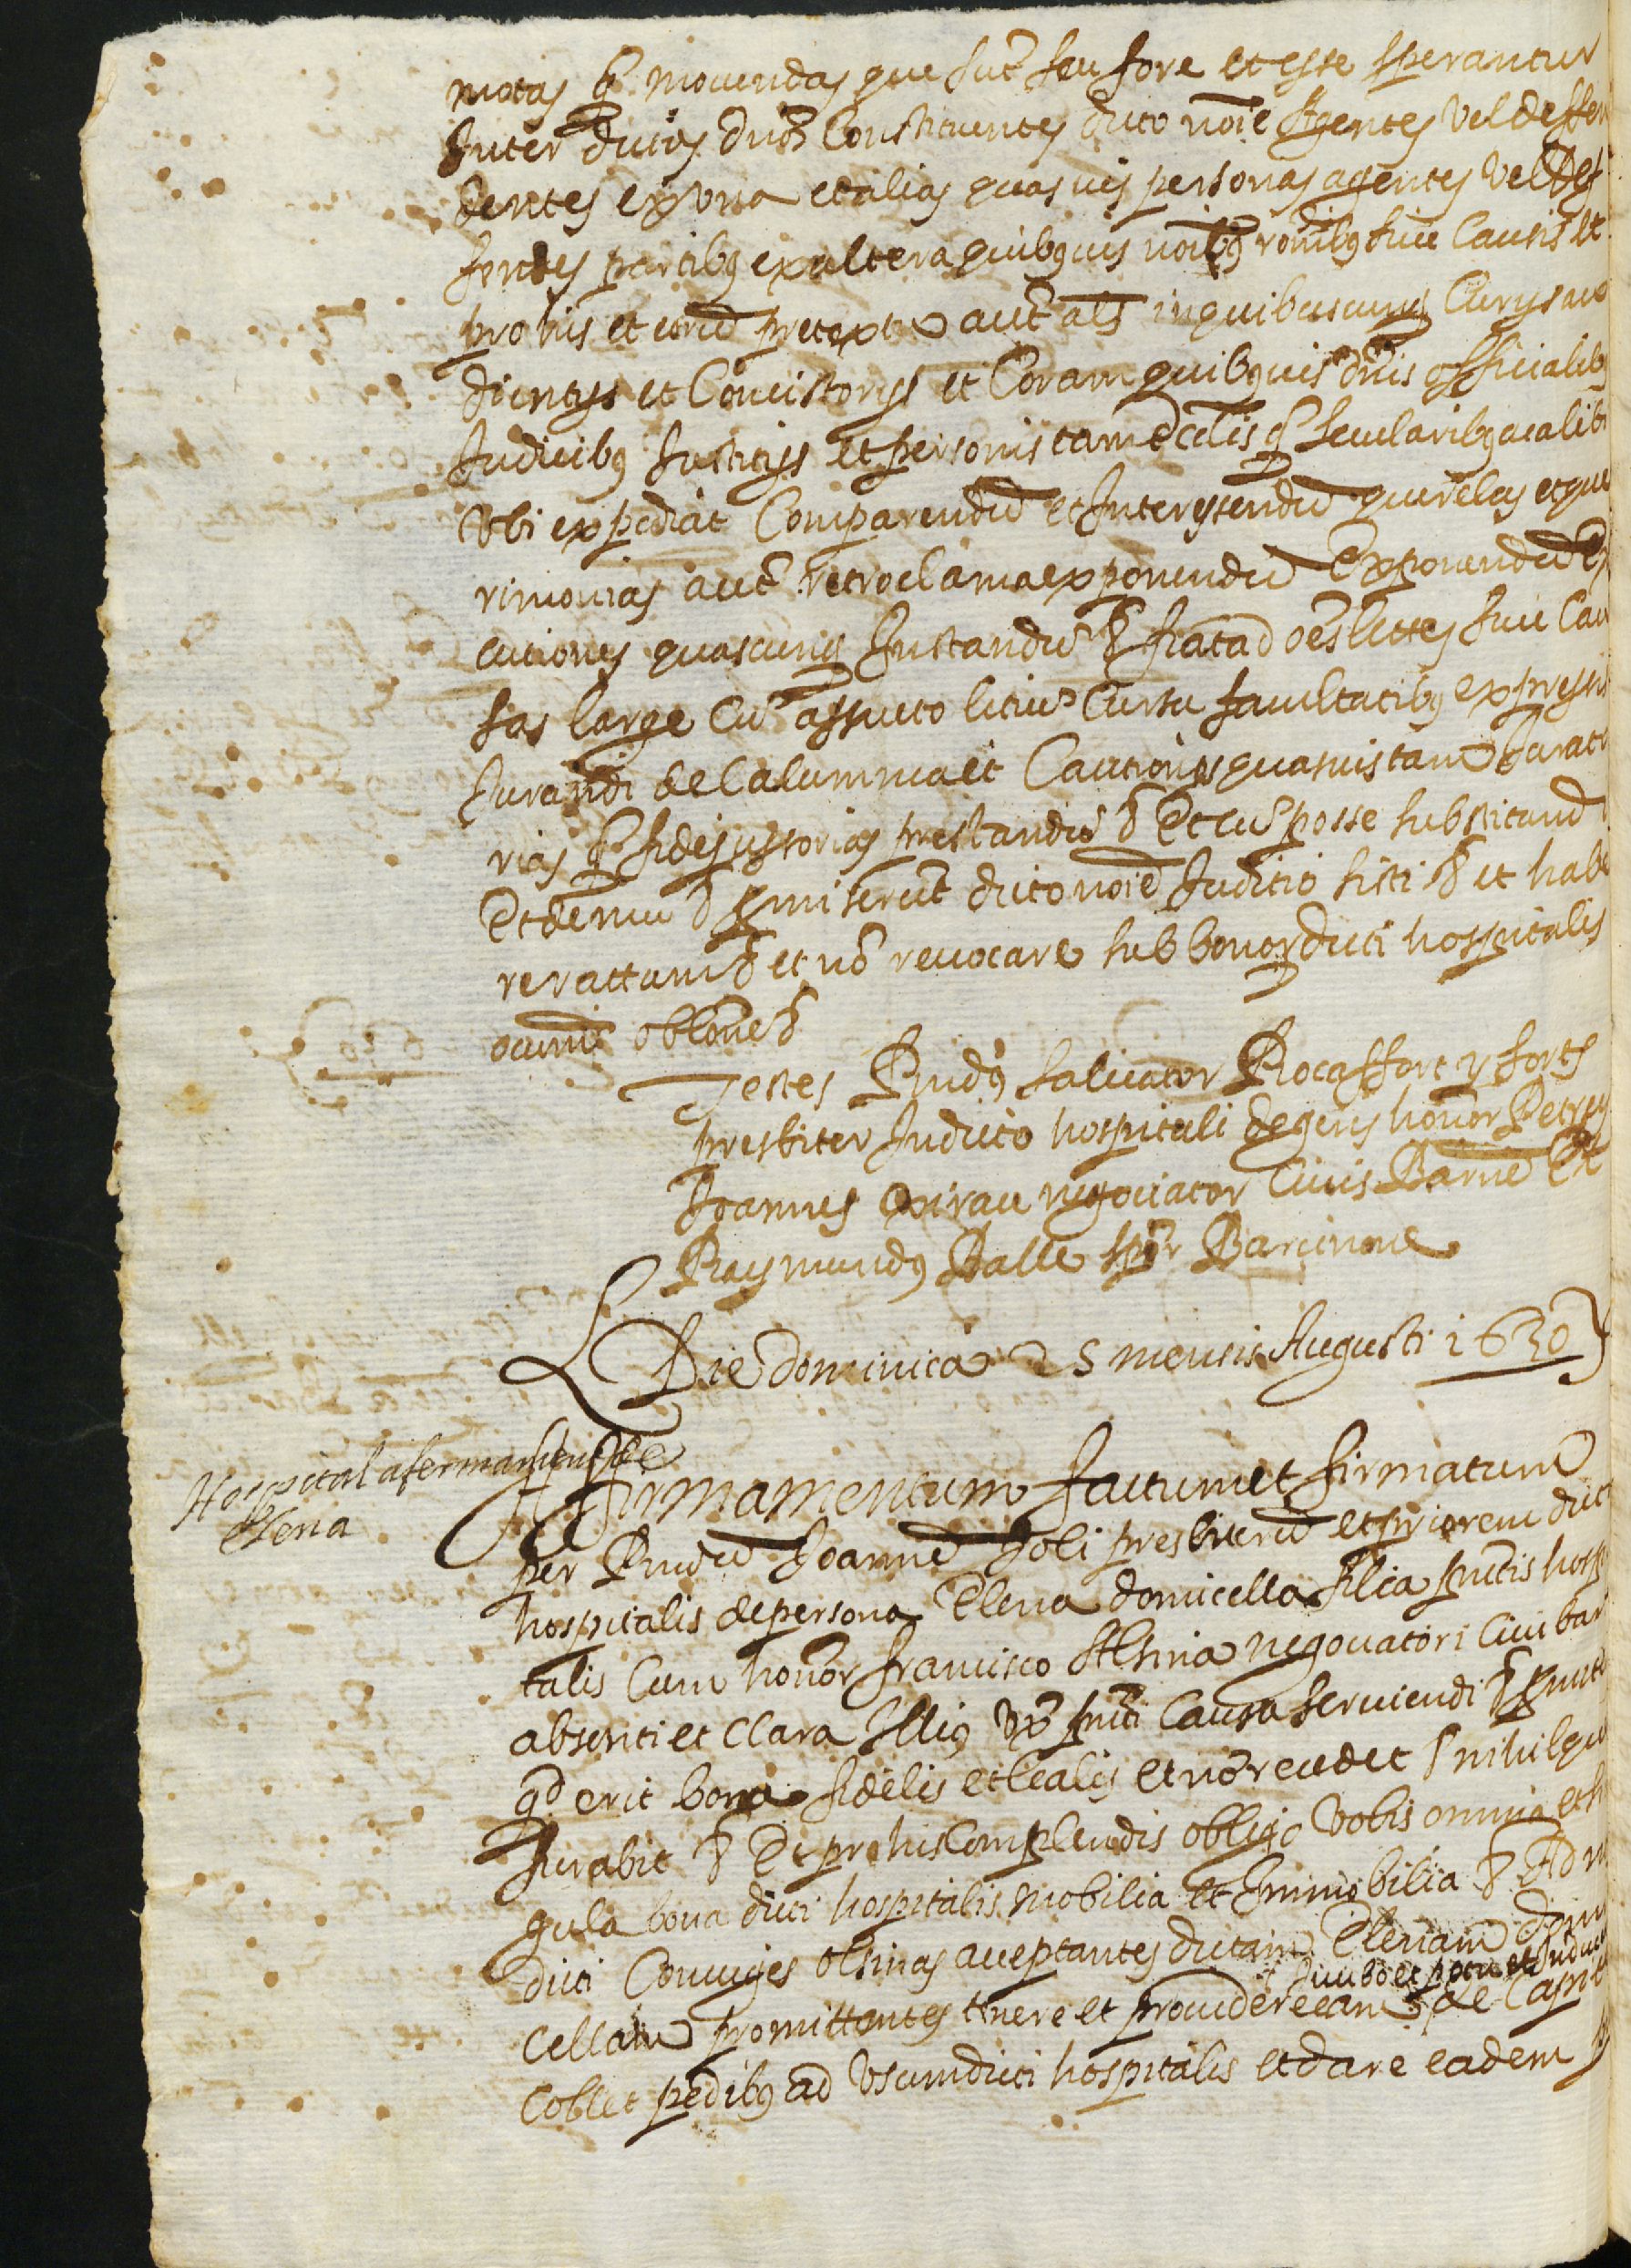 motas & mouendas que sut seu fore et esse sperantur
Inter dictos dnos Constituentes dicto noie Agentes vel deffen
dentes ex vna et alias quasuis personas agentes vel def
fentes partibus ex altera quibusuis noibus ronibus siue Causis et
pro his et eorud pretextu aut als in quibuscunque Curys au
diencys et Concistorys et Coram quibusuis dnis officialibus
Judicibus Justitys et personis tam eccliis q secularibus ac alibi
vbi expediat Comparendu et Interessendu querelas et que
rimonias aut retroclama exponendu Exponendu Ex
cutiones quascunque Instandu & fiat ad oes lites siue Cau
sas large Cu assueto litiu Cursu facultatibus expressis
Jurandi de Calumnia et Cautiones quasuis tam Jurato
rias q fideiussorias prestandu & Et cu posse substituend
Et demu & pmiserut dicto noie Juditio sisti & et habe
re rattum & et no reuocare sub bonor dicti hospitalis
omni oblone &
Testes Rndus saluator Rocaffort y forts
presbiter In dicto hospitali degens honor Petrus
Joannes Oxirau negociator Ciuis Barne Et
Raymundus Dalle spr Barcinone
Die dominica 25 mensis Augusti 1630
Hospital afermament de
Elena
Affirmamentum factum et firmatum
per Rndu Joanne Joli presbiteru et priorem dicti
hospitalis de persona Elena domicella filia pntis hospi
talis Cum honor francisco Alsina negociatori Ciui bar
absenti et Clara Illius vx pnti Causa seruiendi & pmit
qd erit bona fidelis et lealis et no recedet & nihilque
furabit & Et pro his Complendis obligo vobis omnia et sin
gula bona dicti hospitalis mobilia et Immobilia & Ad h
dicti Coniuges olsinas acceptantes dictam Elenam domi
cibo et potu et Induct
Cellam promittentes tenere et prouidere eam de Capite
Coblet pedibus ad vsum dicti hospitalis et dare eadem